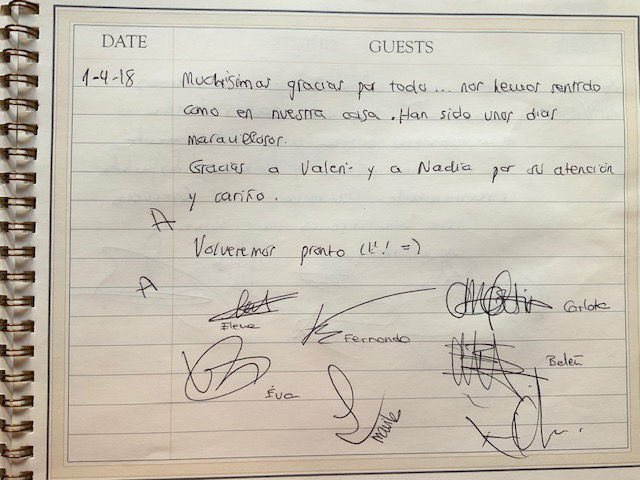 DATE GUESTS
1-4-18 Muchísimas gracias por todo... nos hemos sentido
como en nuestra casa. Han sido unos días
maravillosos.
Gracias a Valeri y a Nadia por su atención
y cariño.
A
Volveremos pronto (!!! =)
A
Elena
Fernando
Carlota
Eva
Belén